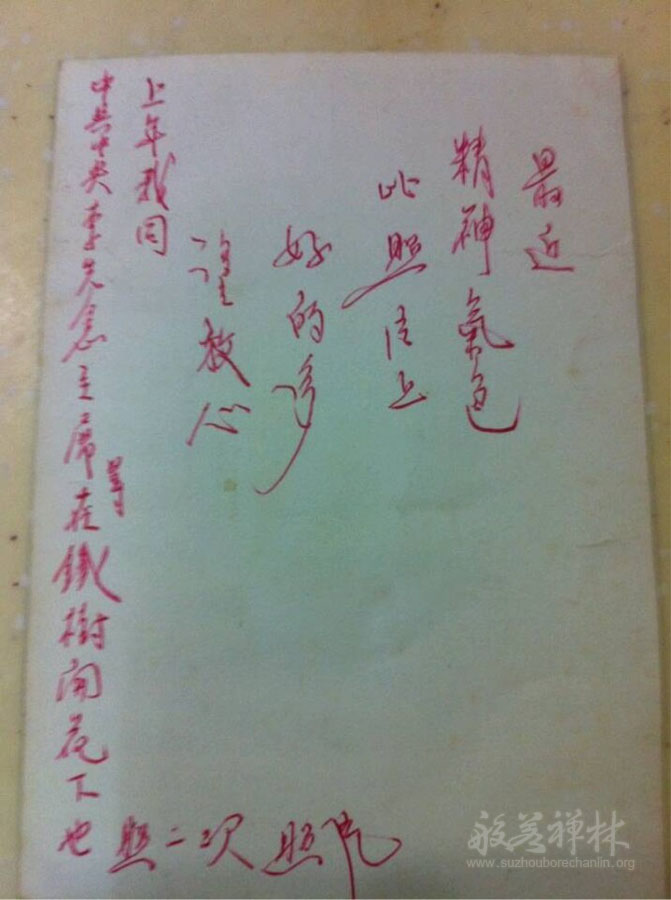 最近
精神氣色
比照片上
好的多
望放心
上年我同
中共中央李先念主席等在鐵樹開花下也
照二次照片
般若禅林
www.suzhouborechanlin.org